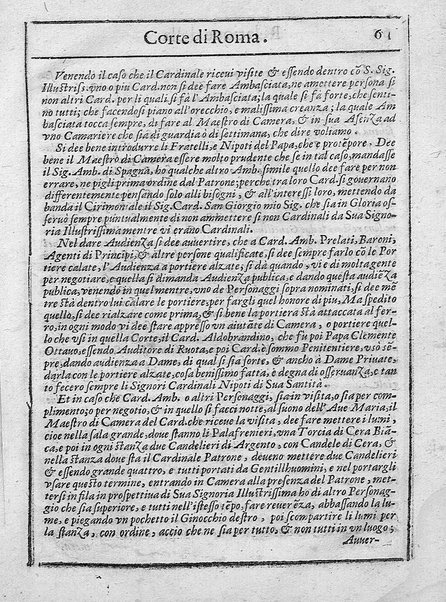 Corte di Roma. 61
Venendo il caso che il Cardinale riceui visite & essendo dentro cō S. Sig.
Illustriss. vno o piu Card. non si dee fare Ambasciata, ne ammettere persona si
non altri Card. per li quali si fà l'Ambasciata; la quale si fa forte, che sente-
no tutti; che facendosi piano all'orecchio, e malissima creanza; la quale Am
basciata tocca sempre, di fare al Maestro di Camera, & in sua Asenza ad
vno Camariere che sia di guardia ò di settimana, che dire voliamo.
Si dee bene introdurre li Fratelli, e Nipoti del Papa, che è pro tēpore. Dee
bene il Maestro di Camera essere molto prudente che se in tal caso, mandasse
il Sig. Amb. di Spagna, ho qualche altro Amb. simile quello dee fare per non
errare, ne pigli prima ordine dal Patrone; perche tra loro Card. si gouernano
differentemente pensando solo alli bisogni, & all'interessi loro, mettendo da
banda il Cirimoniale il Sig. Card. San Giorgio mio Sig. che sia in Gloria os-
seruò sempre puntualmente di non ammettere si non Cardinali da Sua Signo-
ria Illustrissima mentre vi erano Cardinali.
Nel dare Audienza si dee auuertire, che a Card. Amb. Prelati, Baroni,
Agenti di Principi, & altre persone qualificate, si dee sempre farlo cō le Por
tiere calate, l'Audienza a portiere alzate, si dà quando vi e di molta gente
per negotiare, e quella si dimanda Audienza publica, e dando questa audiēza
publica, venendo in quel mentre, vno de Personaggi sopra nominati, si dee mē
tre stà dentro lui calare le portiere, per fargli quel honore di piu, Ma spedito
quello, si dee rialzare come prima, & si bene la portiera stà attaccata al fer-
ro, in ogni modo vi dee stare appresso vn aiutāte di Camera, o portiere quel-
lo che vsi in quella Corte, il Card. Aldobrandino, che fu poi Papa Clemente
Ottauo, essendo Auditore di Ruota, e poi Card. è sommo Penitentiere, vsò sē-
pre, dando audienza a Dame, di qual si sia sorte, & ancho à Dame Priuate,
darla con le portiere alzate, cosa benissimo fatta, è degna di osseruanza, e tan
to fecero sempre li Signori Cardinali Nipoti di Sua Santità.
Et in caso che Card. Amb. o altri Personaggi, sia in visita, o sia per com-
plimento; o per negotio, & in quello si facci notte, al suono dell'Aue Maria, il
Maestro di Camera del Card. che riceue la visita, dee fare mettere i lumi,
cioe nella sala grande, doue stanno li Palafrenieri, vna Torcia di Cera Biā-
ca, e poi in ogni stanza due Candelieri di Argento, con Candele di Cera, &
nella stanza doue sta il Cardinale Patrone, deueno mettere due Candelieri
& essendo grande quattro, e tutti portati da Gentillhuomini, e nel portargli
vsare questo termine, entrando in Camera alla presenza del Patrone, met-
tersi in fila in prospettiua di Sua Signoria Illustrissima ho di altro Personag-
gio che sia superiore, e tutti nell'istesso tēpo, fare reuerēza, abbassando la lu-
me, e piegando vn pochetto il Ginocchio destro, poi scompartire li lumi per
la stanza, con ordine, acciò che ne sia per tutto, & non tutti in vn luogo;
Auuer-